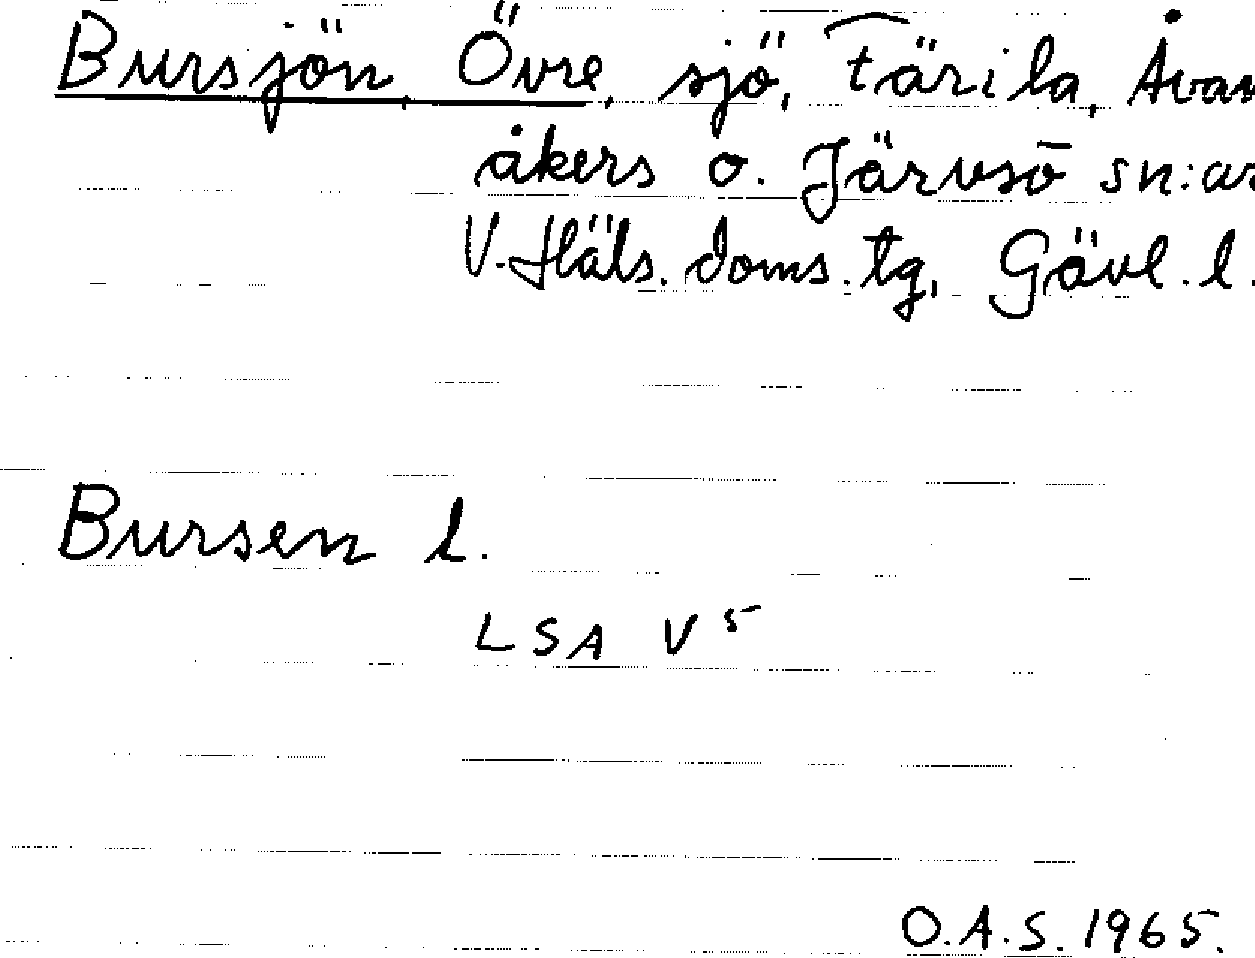 Bursjön, Övre, sjö, Färila, Åvan
åkers o. Järvsö sn:ar
V. Häls. doms. tg, Gävl. l.
Bursen l.
LSA V5
O.A.S. 1965.